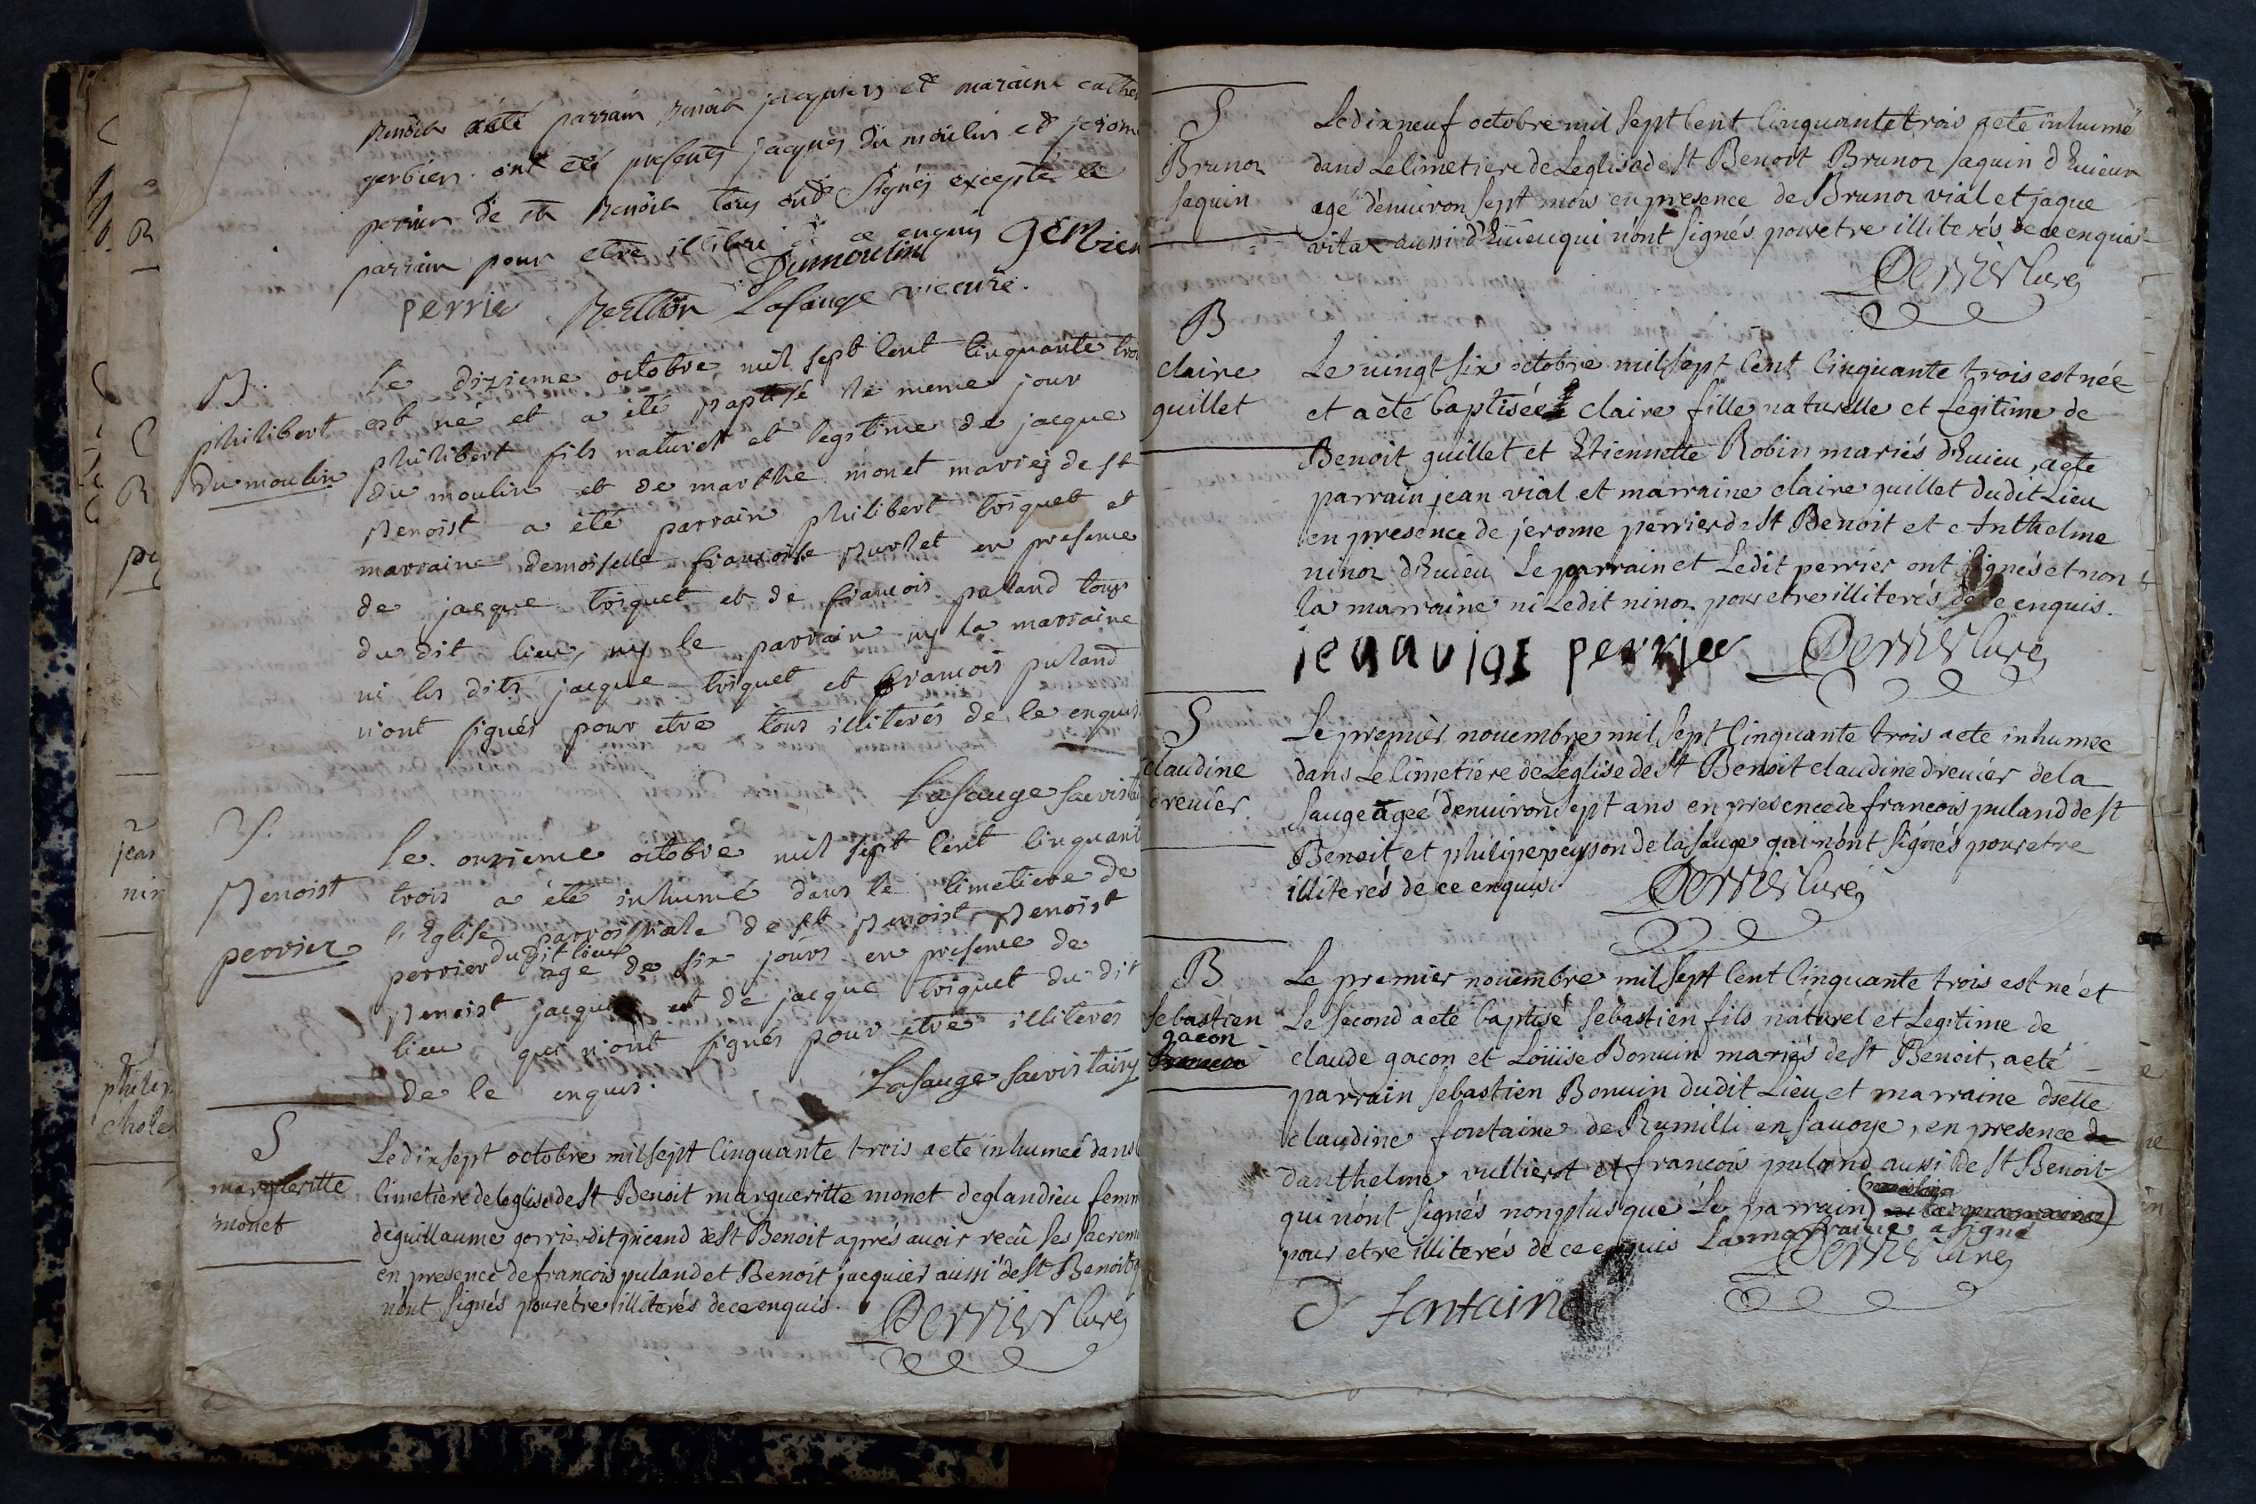 benoit a été parrain benoit jacquiers et maraine cathe
gerbier. ont été presents jacques du moulin et jerome
perier de st benoit tous ont signés excepté le
parrain pour etre illitere de ce enquis
Dumoulin gerbier
perrier berthon Lasauge vicaire.
B.
philibert
du moulin
le dixieme octobre mil sept cent cinquante trois
est né et a été baptisé le meme jour
philibert fils naturel et legitime de jacque
du moulin et de marthe monet mariez de st
Benoist a été parrain philibert triquet et
marraine demoiselle francoise Burlet en presence
de jacque triquet et de francois paland tous
du dit lieu, ny le parrain ny la marraine
ni les dits jacque triquet et francois puland
n'ont signés pour etre tous illiterés de le enquis.
Lasauge sacristain
S.
Benoist
perrier
le onzieme octobre mil sept cent cinquante
trois a été inhumé dans le cimetiere de
l'Eglise parroissiale de st Benoist Benoist
perrier du dit lieu age de six jours en presence de
Benoist jacquier et de jacque triquet du dit
lieu qui n'ont signés pour être illiterés
de le enquis.
Lasauge sacristain
S
margueritte
monet
Le dix sept octobre mil sept Cinquante trois a eté inhumeé dans
Cimetière de leglise de st Benoit margueritte monet de glandieu femme
de guillaume gorrier dit gueand de st Benoit aprés avoir recû ses sacrem
en presence de francois puland et Benoit jacquier aussi de st Benoit q
n'ont signés pour étre illiterés de ce enquis.
Perrier Curé
S
Brunoz
saquin
Le dix neuf octobre mil sept Cent Cinquante trois a eté inhumé
dans Le Cimetiere de Leglise de st Benoit Brunoz saquin d'Evieux
agé d'environ sept mois en presence de Brunoz vial et jaque
vital aussi d'Evieu qui n'ont signés pour etre illiterés de ce enquis
Perrier Curé
B
Claire
guillet
Le vingt six octobre mil sept Cent Cinquante trois est née
et a eté baptisée Claire fille naturelle et Legitime de
Benoit guillet et Etiennette Robin mariés d'Evieu, a eté
parrain jean vial et marraine claire guillet dudit Lieu
en presence de jerome perrier de st Benoit et Anthelme
ninoz d'Evieu Le parrain et Ledit perrier ont signés et non
la marraine ni Ledit ninoz pour etre illiterés de ce enquis.
jean vial perrier Perrier Curé
S
claudine
drevier.
Le premier novembre mil sept Cinquante trois a eté inhumee
dans Le Cimetiére de Leglise de st Benoit claudine drevier de la
sauge ageé d'environ sept ans en presence de francois puland de st
Benoit et philipe peyson de la sauge qui n'ont signés pour etre
illiterés de ce enquis.
Perrier Curé
B
sebastien
gacon
Le premier novembre mil sept Cent Cinquante trois est né et
Le second a eté baptisé sebastien fils naturel et Legitime de
claude gacon et Loüise Bonvin mariés de st Benoit, a eté
parrain sebastien Bonvin dudit Lieu et marraine dselle
claudine fontaine de Rumilli en savoye, en presence de
d'anthelme vullierst et francois puland aussi de st Benoit
qui n'ont signés non plus que Le parrain
pour etre illiterés de ce enquis La marraine a signé
Perrier Curé
fontaine